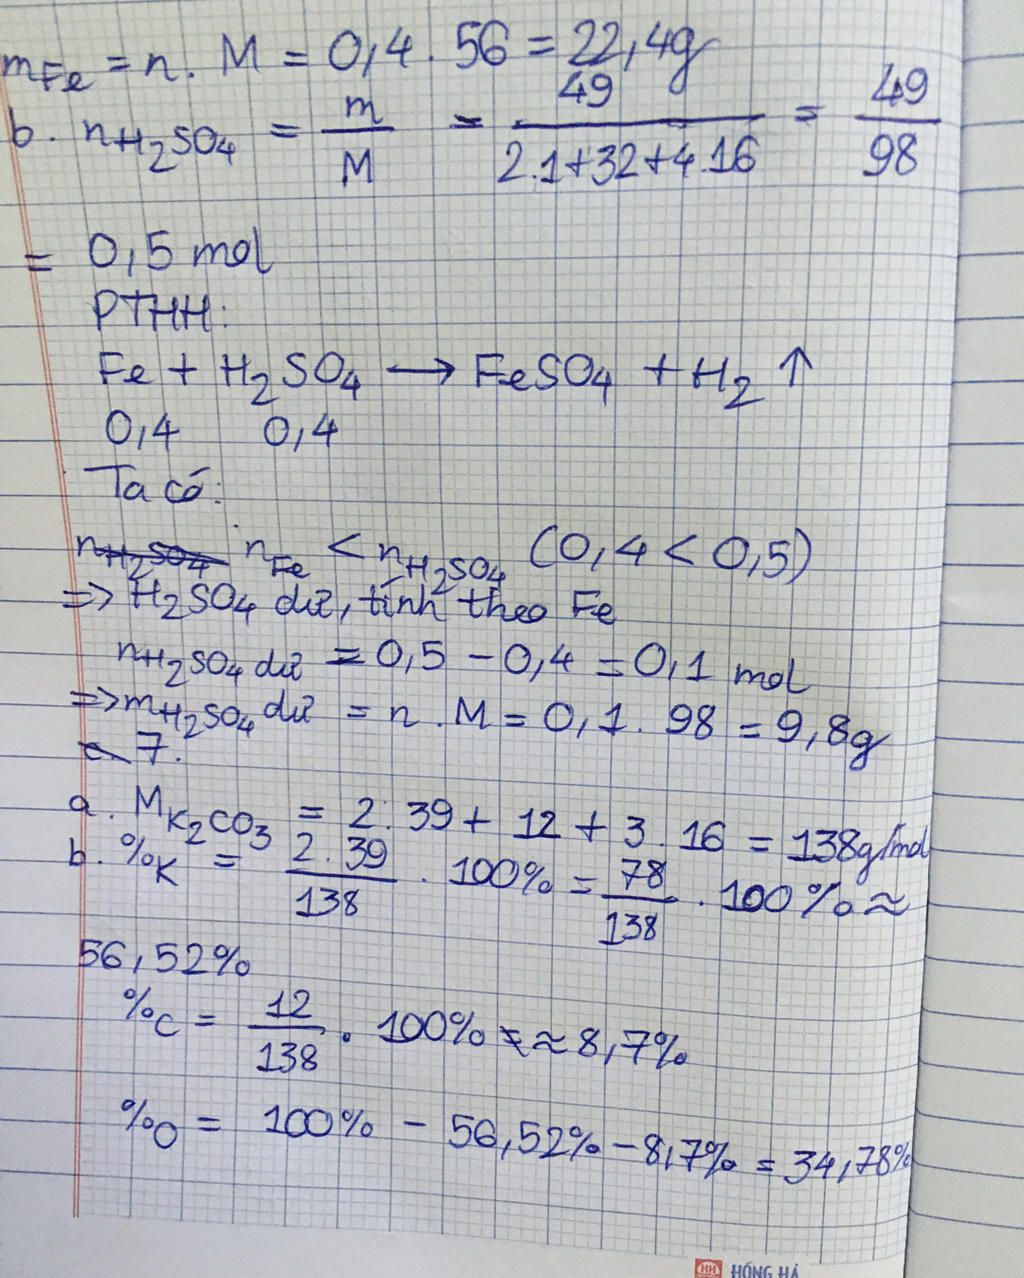 mFe = n. M = 0,4 . 56 = 22,4g
b. nH2SO4 = m/M = 49/(2.1+32+4.16) = 49/98
= 0,5 mol
PTHH:
Fe + H2SO4 → FeSO4 + H2 ↑
0,4 0,4
Ta có:
nH2SO4 nFe < nH2SO4 (0,4 < 0,5)
=> H2SO4 dư, tính theo Fe
nH2SO4 dư = 0,5 - 0,4 = 0,1 mol
=> mH2SO4 dư = n . M = 0,1 . 98 = 9,8g
7.
a. MK2CO3 = 2. 39 + 12 + 3. 16 = 138g/mol
b. %K = 2.39/138 . 100% = 78/138 . 100% ≈
56,52%
%C = 12/138 . 100% ≈ 8,7%
%O = 100% - 56,52% - 8,7% = 34,78%
HH HỒNG HÀ